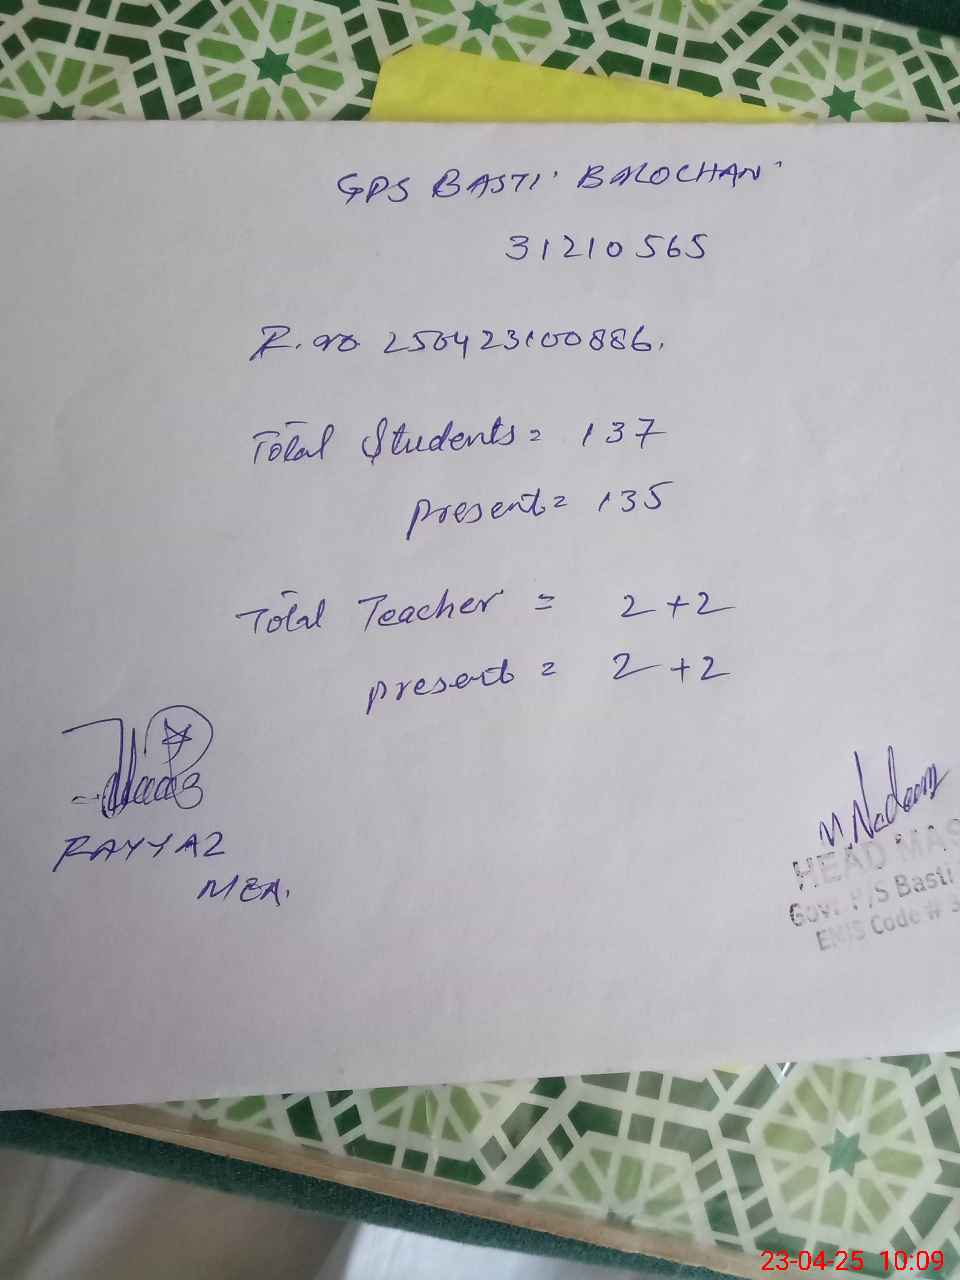 GPS BASTI BALOCHAN
31210565
R. no 250423100886.
Total Students = 137
present = 135
Total Teacher = 2+2
present = 2+2
RAYYAZ
MEA.
M. Nadeem
HEAD MAS
Govt P/S Basti
EMIS Code #
23-04-25 10:09